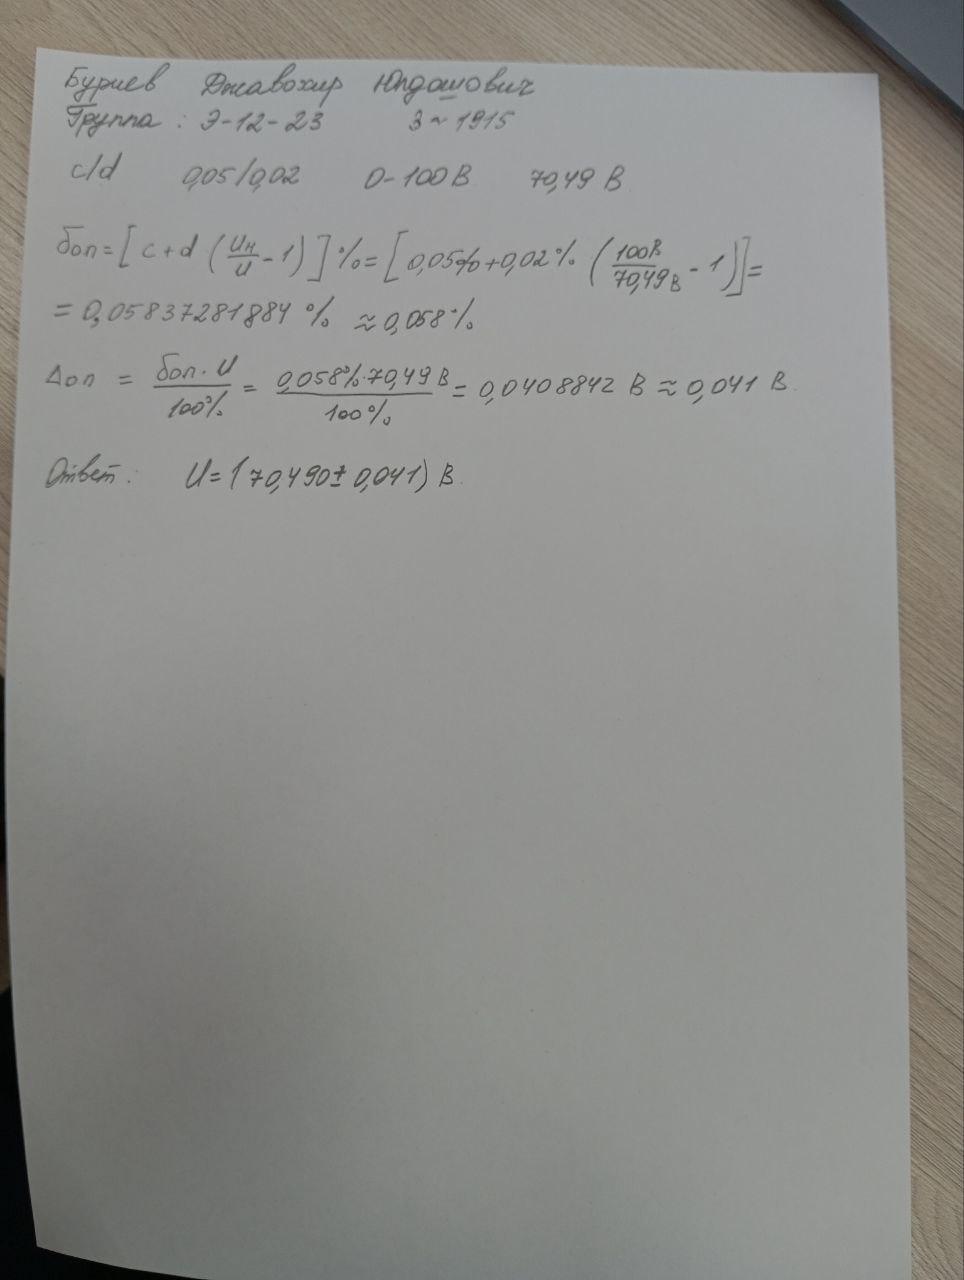 Буриев Джавохир Юлдошович
Группа: Э-12-23 3~1915
c/d 0,05/0,02 0-100 В 70,49 В
δоп = [c+d (Uн/U - 1)] % = [0,05%+0,02% (100В/70,49В - 1)] =
= 0,05837281884 % ≈ 0,058%
Δоп = δоп·U/100% = 0,058%·70,49 В/100% = 0,0408842 В ≈ 0,041 В.
Ответ: U = (70,490 ± 0,041) В.